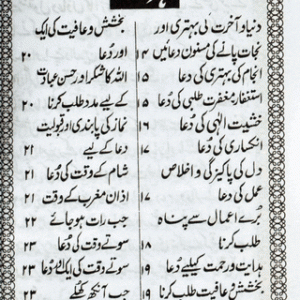 دنیا و آخرت کی بہتری اور
نجات پانے کی مسنون دعائیں ۱۴
انجام کی بہتری کی دعا ۱۵
استغفار مغفرت طلبی کی دُعا ۱۵
خشیت الٰہی کی دُعا ۱۶
انکساری کی دُعا ۱۷
دل کی پاکیزگی و اخلاص
عمل کی دُعا ۱۷
بُرے اعمال سے پناہ
طلب کرنا ۱۸
ہدایت و رحمت کیلیے دُعا ۱۹
بخشش و عافیت طلب کرنا ۱۹
بخشش و عافیت کی ایک
اور دُعا ۲۰
اللہ کا شکر اور حسن عبادت
کے لیے مدد طلب کرنا ۲۰
نماز کی پابندی اور قبولیت
دُعا کے لیے ۲۱
شام کے وقت کی دُعا ۲۱
اذان مغرب کے وقت ۲۱
جب رات ہو جائے ۲۲
سوتے وقت کی دُعا ۲۳
سوتے وقت کی ایک دُعا ۲۳
جب آنکھ کھلے ۲۳